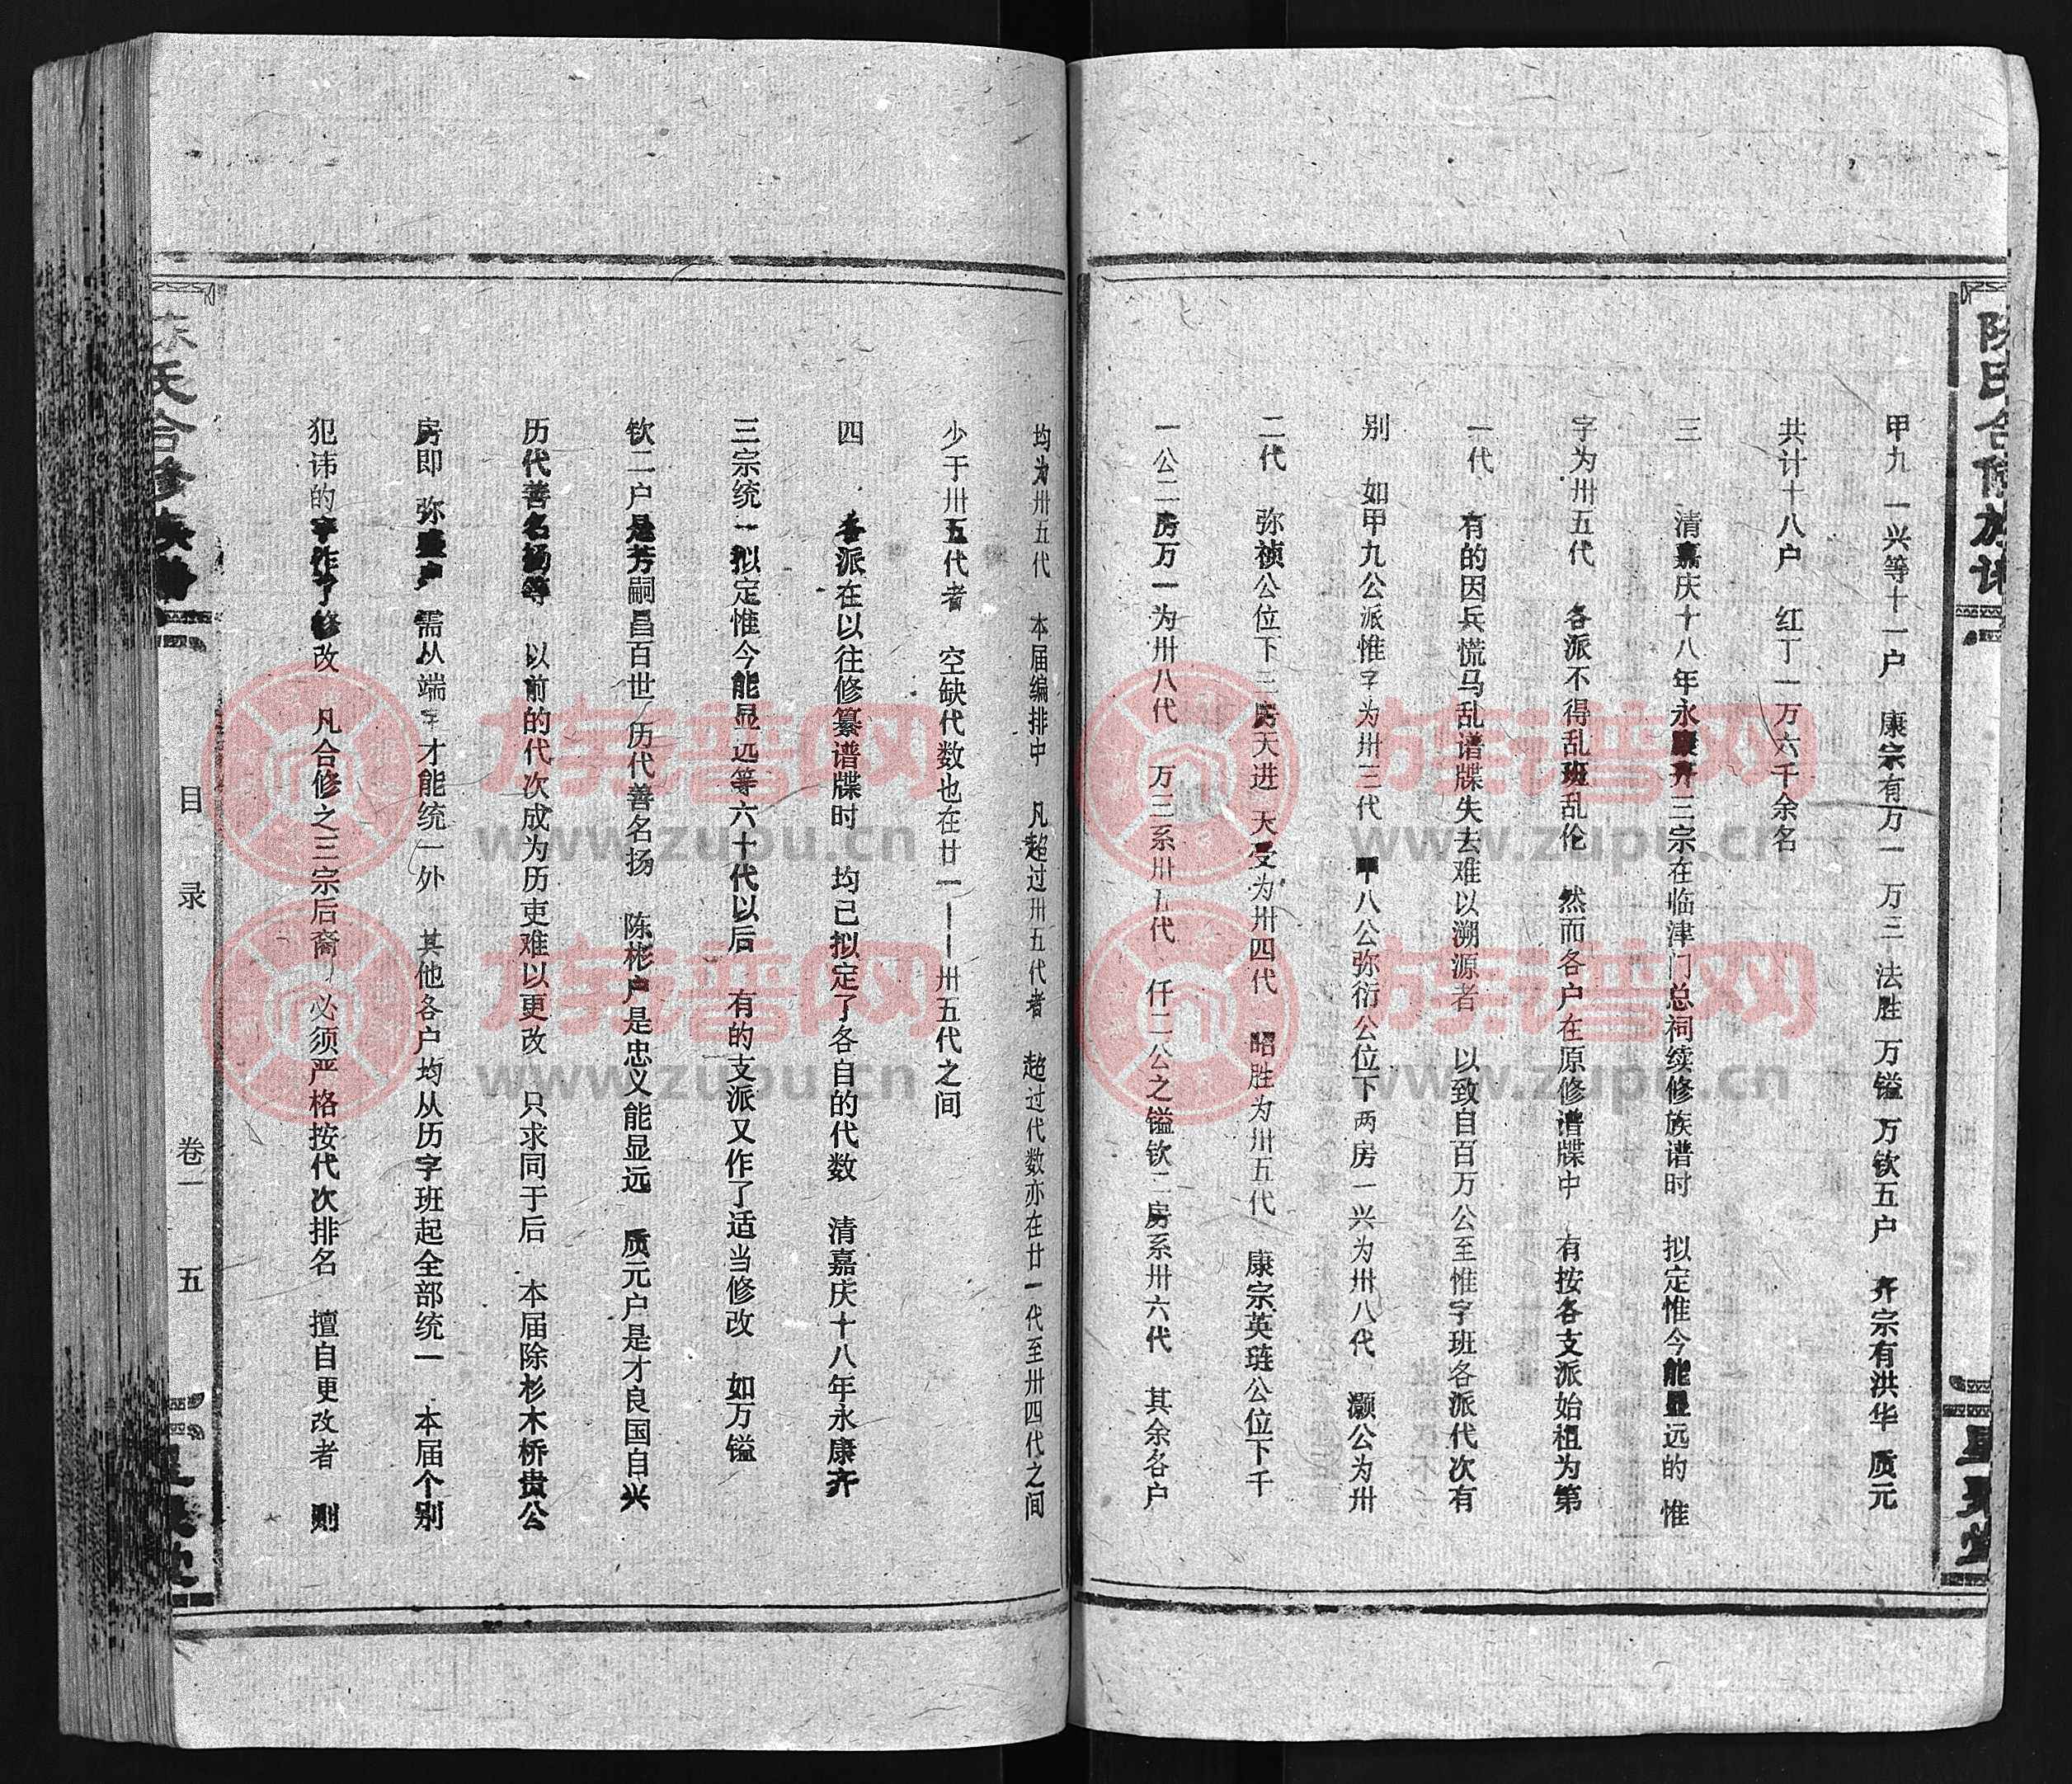 陈氏合修族谱
星聚堂
甲九 一兴等十一户 康宗有万一 万三 法胜 万镒 万钦五户 齐宗有洪华 质元
共计十八户 红丁一万六千余名
三 清嘉庆十八年永康齐三宗在临津门总祠续修族谱时 拟定惟今能显远的 惟
字为卅五代 各派不得乱班乱伦 然而各户在原修谱牒中 有按各支派始祖为第
一代 有的因兵慌马乱谱牒失去难以溯源者 以致自百万公至惟字班各派代次有
别 如甲九公派惟字为卅三代 甲八公弥衍公位下两房一兴为卅八代 灏公为卅
二代 弥祯公位下三房天进 天受为卅四代 昭胜为卅五代 康宗英琏公位下千
一公二房万一为卅八代 万三系卅九代 仟二公之镒钦二房系卅六代 其余各户
均为卅五代 本届编排中 凡超过卅五代者 超过代数亦在廿一代至卅四代之间
少于卅五代者 空缺代数也在廿一——卅五代之间
四 各派在以往修纂谱牒时 均已拟定了各自的代数 清嘉庆十八年永康齐
三宗统一拟定惟今能显远等六十代以后 有的支派又作了适当修改 如万镒
钦二户是芳嗣昌百世 历代善名扬 陈彬户是忠义能显远 质元户是才良国自兴
历代善名扬等 以前的代次成为历吏难以更改 只求同于后 本届除杉木桥贵公
房即 弥 户 需从端字才能统一外 其他各户均从历字班起全部统一 本届个别
犯讳的字作了修改 凡合修之三宗后裔 必须严格按代次排名 擅自更改者 则
陈氏合修族谱
目录 卷一 五
星聚堂
族谱网
www.zupu.cn
族谱网
www.zupu.cn
族谱网
www.zupu.cn
族谱网
www.zupu.cn